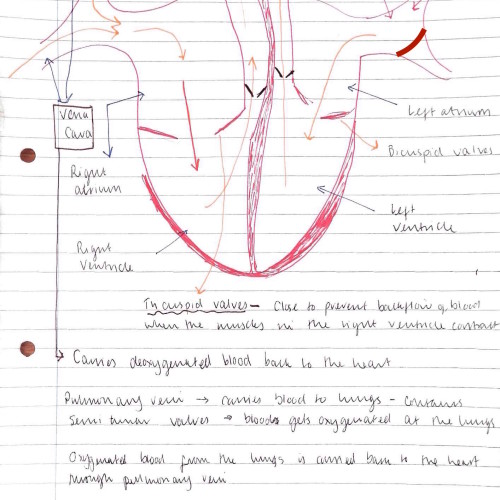 Vena
Cava
Left atrium
Bicuspid valves
Right
atrium
Left
ventricle
Right
ventricle
Tricuspid valves - Close to prevent backflow of blood
when the muscles in the right ventricle contract
Carries deoxygenated blood back to the heart
Pulmonary vein → carries blood to lungs - contains
Semi lunar valves → blood gets oxygenated at the lungs
Oxygenated blood from the lungs is carried back to the heart
through pulmonary vein